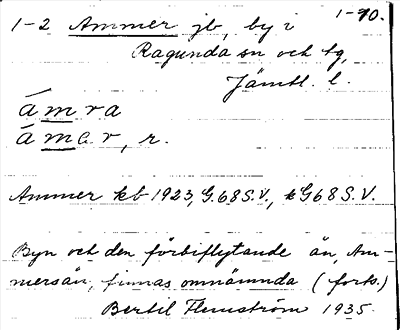 1-2 Ammer jb, by i 1-90.
Ragunda sn och tg,
Jämtl. l.
ámra
ámar, r.
Ammer kb 1923, G.68 S.V., k G68 S.V.
Byn och den förbiflytande ån, Am-
mersån, finnas omnämnda (forts.)
Bertil Flemström 1935.